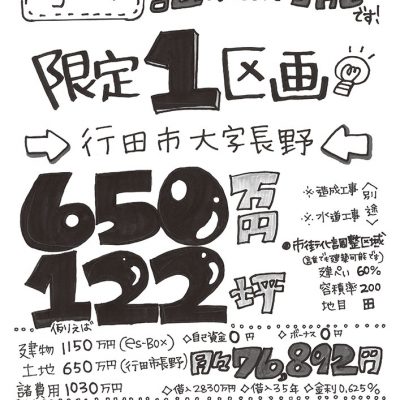 です!
限定1区画
行田市大字長野
650万円
122坪
※造成工事
※水道工事
別途
●市街化調整区域
(誰でも建築可能です)
建ぺい 60%
容積率 200
地目 田
例えば
建物 1150万円(es-Box)
土地 650万円(行田市長野)
諸費用 1030万円
◇自己資金0円 ◇ボーナス0円
月々76,892円
◇借入2830万円 ◇借入35年 ◇金利0.625%